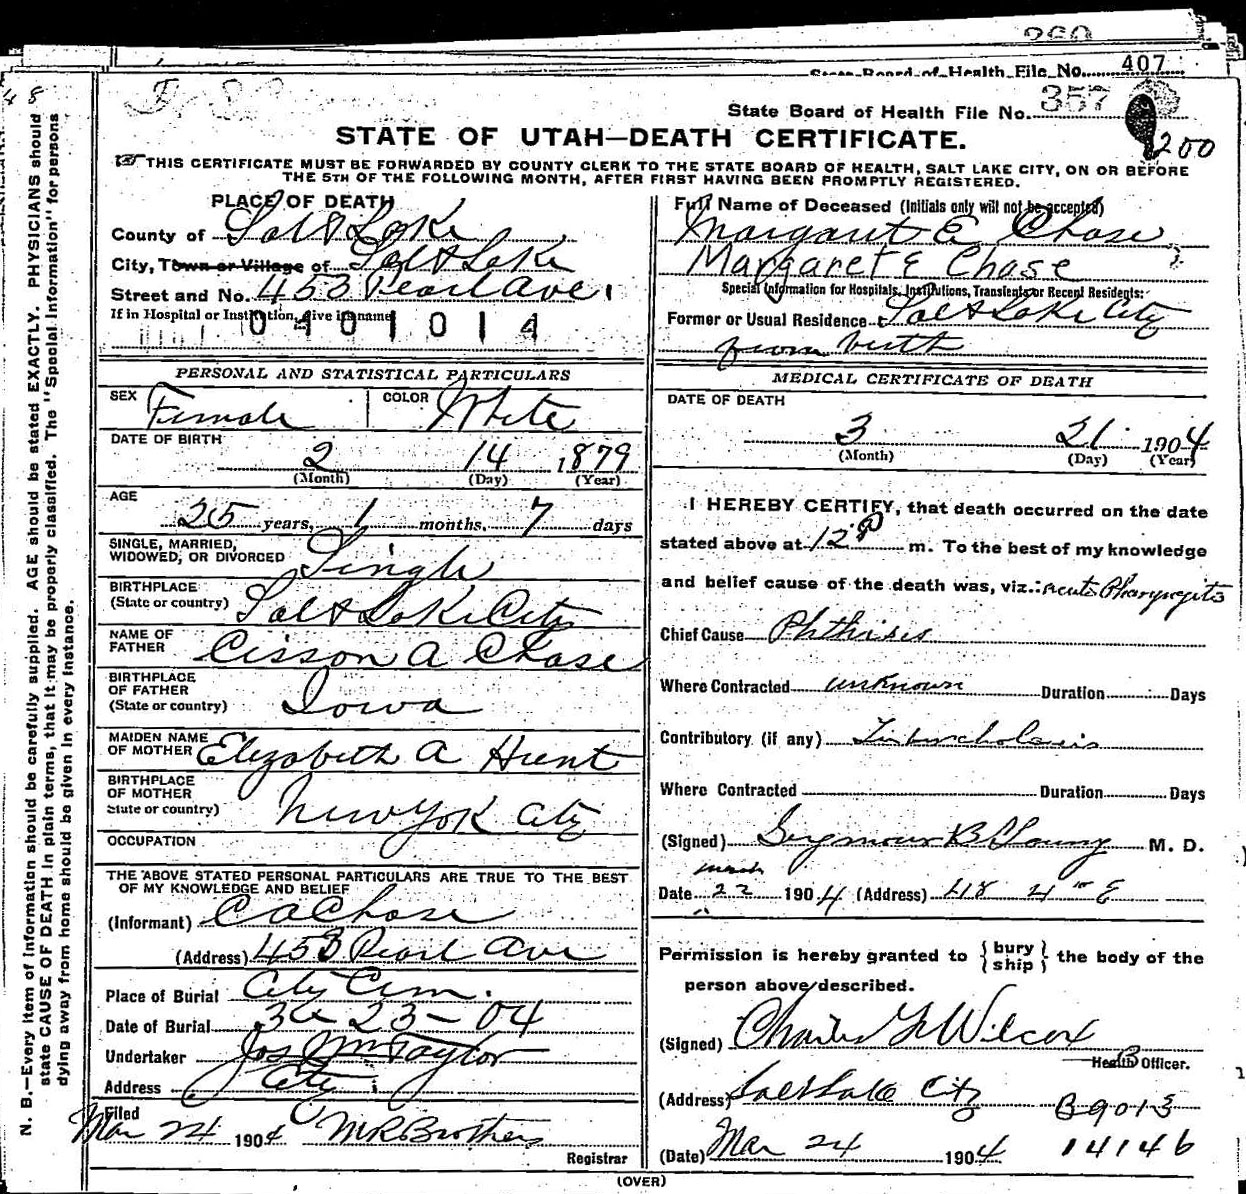 260
State Board of Health File No. 407
48
State Board of Health File No. 357
200
STATE OF UTAH—DEATH CERTIFICATE.
THIS CERTIFICATE MUST BE FORWARDED BY COUNTY CLERK TO THE STATE BOARD OF HEALTH, SALT LAKE CITY, ON OR BEFORE
THE 5TH OF THE FOLLOWING MONTH, AFTER FIRST HAVING BEEN PROMPTLY REGISTERED.
PLACE OF DEATH
County of Salt Lake
City, Town or Village of Salt Lake
Street and No. 453 Pearl Ave.
If in Hospital or Institution, give its name
0401014
Full Name of Deceased (Initials only will not be accepted)
Margaret E Chase
Margaret E Chase
Special Information for Hospitals, Institutions, Transients or Recent Residents:
Former or Usual Residence Salt Lake City
from birth
PERSONAL AND STATISTICAL PARTICULARS
SEX Female COLOR White
DATE OF BIRTH
2 14 1879
(Month) (Day) (Year)
AGE
25 years, 1 months, 7 days
SINGLE, MARRIED,
WIDOWED, OR DIVORCED Single
BIRTHPLACE
(State or country) Salt Lake City
NAME OF
FATHER Cisson A Chase
BIRTHPLACE
OF FATHER
(State or country) Iowa
MAIDEN NAME
OF MOTHER Elizabeth A Hunt
BIRTHPLACE
OF MOTHER
State or country) New York City
OCCUPATION
THE ABOVE STATED PERSONAL PARTICULARS ARE TRUE TO THE BEST
OF MY KNOWLEDGE AND BELIEF
(Informant) C A Chase
(Address) 453 Pearl Ave
Place of Burial City Cem.
Date of Burial 23-04
Undertaker Jos Wm Taylor
Address City
Filed
Mar 24 1904 M R Brothers
Registrar
MEDICAL CERTIFICATE OF DEATH
DATE OF DEATH
3 21 1904
(Month) (Day) (Year)
I HEREBY CERTIFY, that death occurred on the date
stated above at 12 P m. To the best of my knowledge
and belief cause of the death was, viz.: acute Pharyngitis
Chief Cause Phthisis
Where Contracted unknown Duration Days
Contributory (if any) Tuberculosis
Where Contracted Duration Days
(Signed) Seymour B Young M. D.
March
Date 22 1904 (Address) 418 4th E
Permission is hereby granted to {bury
ship} the body of the
person above described.
(Signed) Charles Wilcox
Health Officer.
(Address) Salt Lake City B9013
(Date) Mar 24 1904 14146
(OVER)
N. B.—Every item of information should be carefully supplied. AGE should be stated EXACTLY. PHYSICIANS should
state CAUSE OF DEATH in plain terms, that it may be properly classified. The "Special Information" for persons
dying away from home should be given in every instance.